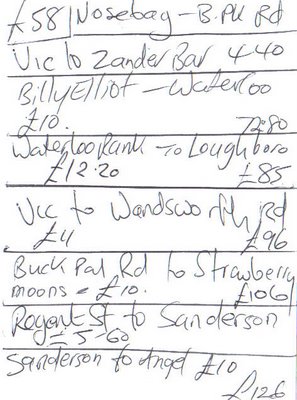 £58 Nosebag - B.Pk Rd
Vic to Zander Bar 4-40
Billy Elliot - Waterloo
£10. 72.80
Waterloo Rank to Loughboro
£12.20 £85
Vic to Wandsworth Rd
£4 £96
Buck Pal Rd to Strawberry
moons = £10. £106
Regent St to Sanderson
= 5-60
Sanderson to Angel £10
£126